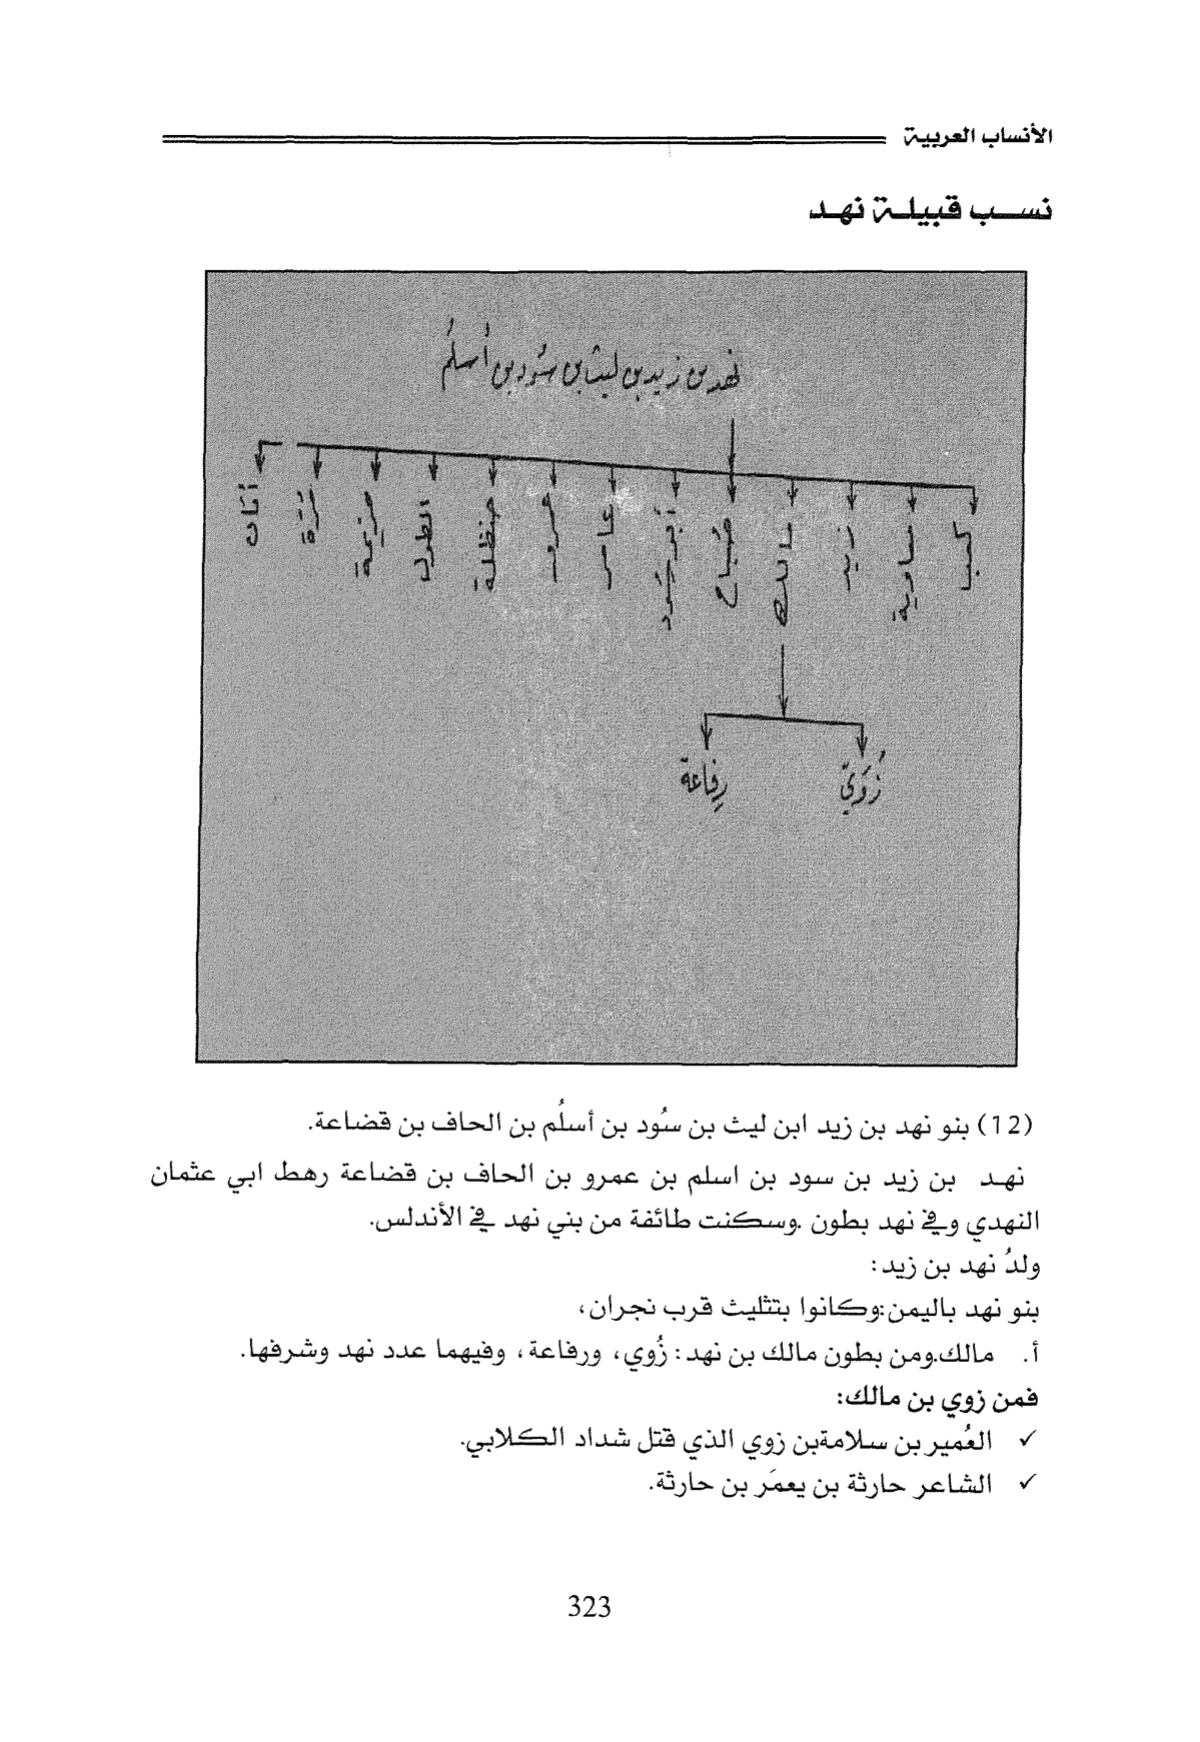 الأنساب العربية
نسب قبيلة نهد
نهد بن زيد بن ليث بن سُود بن أُسلُم
كعب
معاوية
زيد
مالك
صُباح
أبو سُود
عامر
عمرو
حنظلة
الطول
حزيمة
مُرّة
أبان
زُوَيّ
رِفاعة
(12) بنو نهد بن زيد ابن ليث بن سُود بن أسلُم بن الحاف بن قضاعة.
نهد بن زيد بن سود بن اسلم بن عمرو بن الحاف بن قضاعة رهط ابي عثمان
النهدي وفي نهد بطون .وسكنت طائفة من بني نهد في الأندلس.
ولدُ نهد بن زيد:
بنو نهد باليمن:وكانوا بتثليث قرب نجران،
أ. مالك.ومن بطون مالك بن نهد: زُوي، ورفاعة، وفيهما عدد نهد وشرفها.
فمن زوي بن مالك:
✓ العُمير بن سلامةبن زوي الذي قتل شداد الكلابي.
✓ الشاعر حارثة بن يعمَر بن حارثة.
323